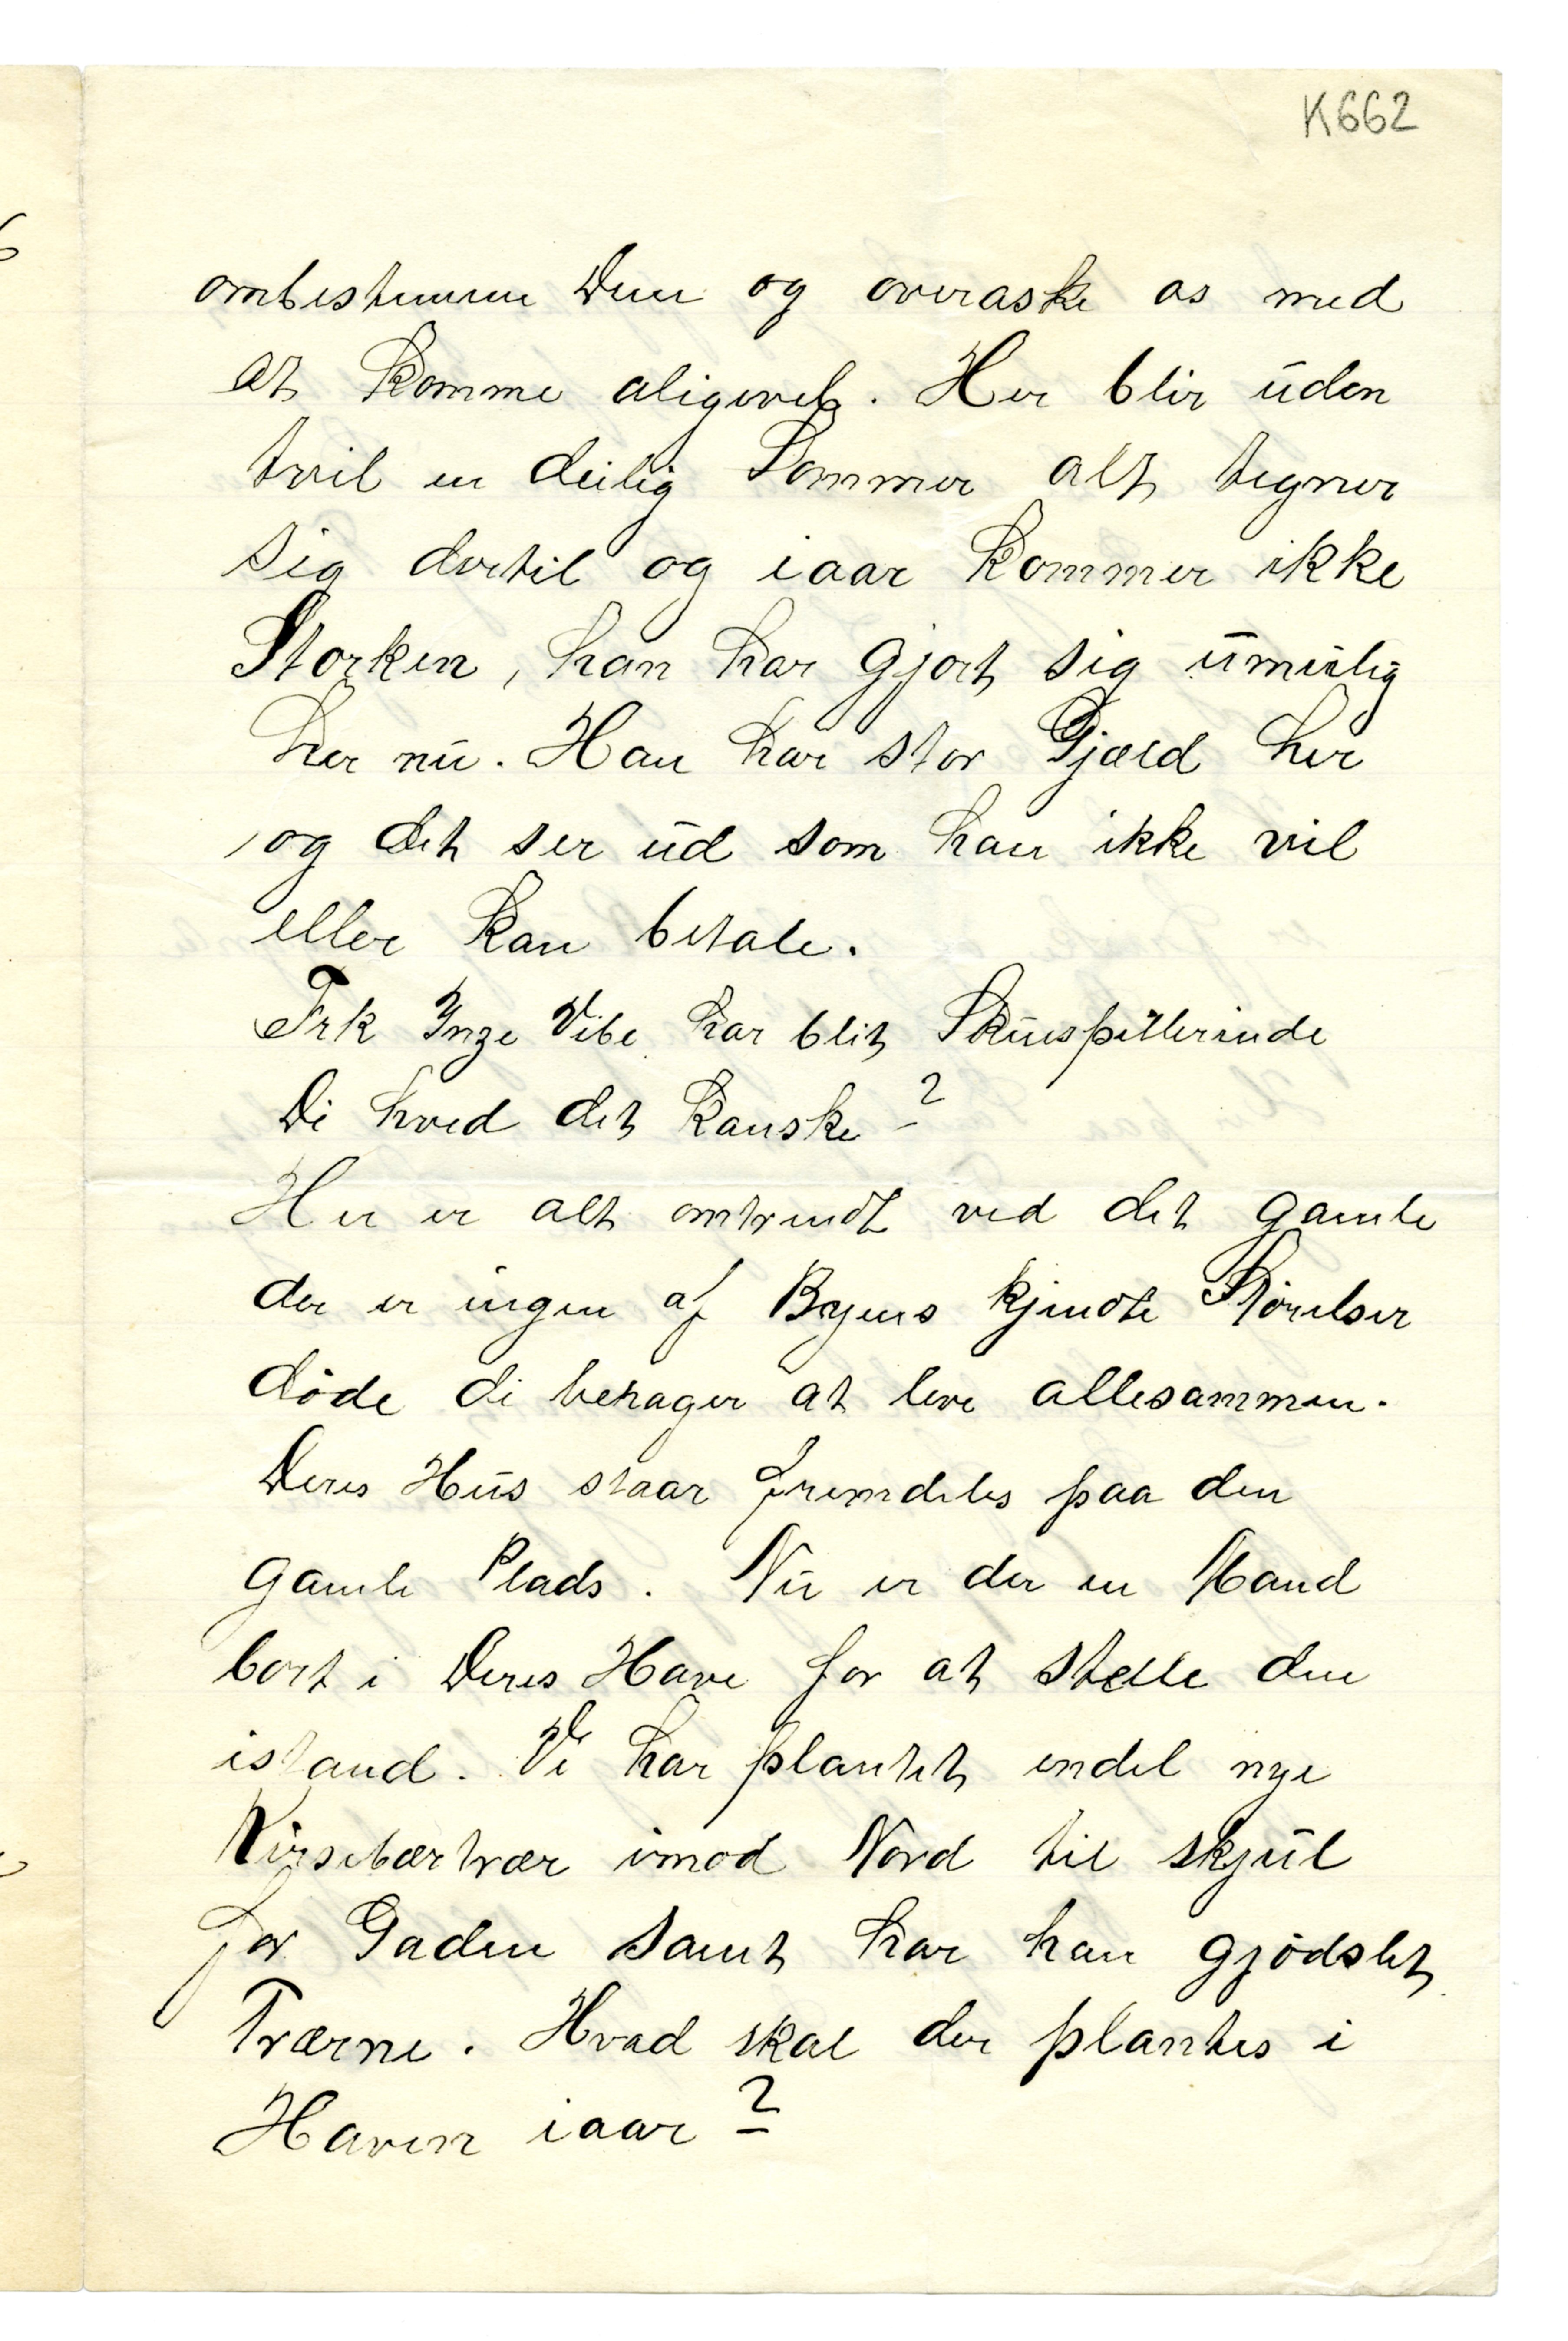 K662
ombestemme Dem og overaske os med
at komme aligevel. Her blir uden
tvil en deilig Sommer alt tegner
sig dertil og iaar kommer ikke
Storken, han har gjort sig umulig
her nu. Han har stor Gjæld her
og det ser ud som han ikke vil
eller kan betale.
Frk Inge Vibe har blit Skuespillerinde
Di hved det kanske?
Her er alt omtrendt ved det gamle
der er ingen af Byens kjendte Størelser
døde di behager at leve allesammen.
Deres Hus staar fremdeles paa den
gamle Plads. Nu er der en Mand
bort i Deres Have for at stelle den
istand. Vi har plantet endel nye
Kirsebærtrær imod Nord til skjul
for Gaden samt har han gjødslet
Trærne. Hvad skal der plantes i
Haven iaar?